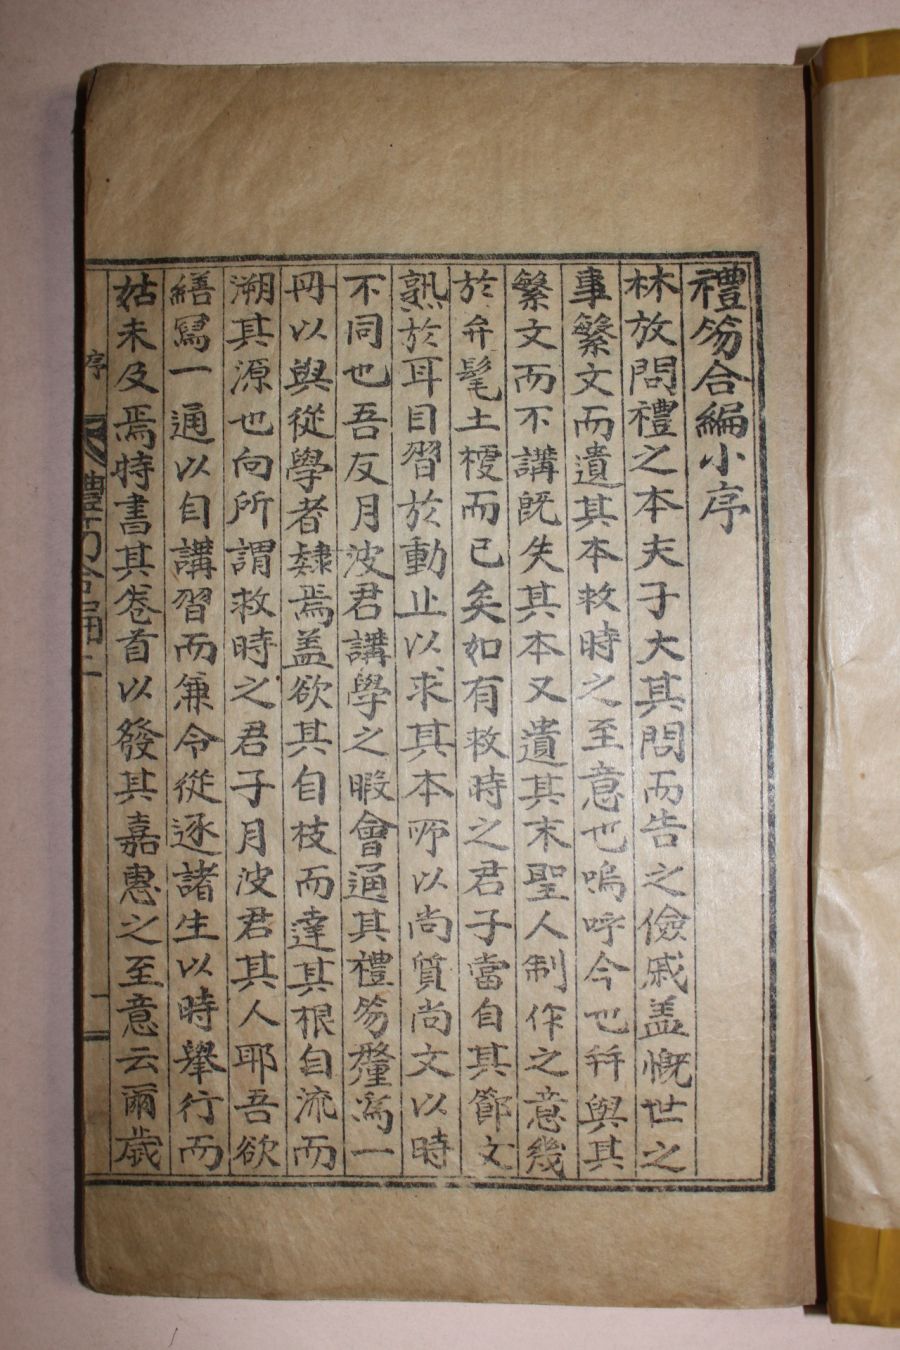 禮笏合編小序
林放問禮之本夫子大其問而告之儉戚盖慨世之
事繁文而遺其本救時之至意也嗚呼今也幷與其
繁文而不講旣失其本又遺其末聖人制作之意幾
於弁髦土梗而已矣如有救時之君子當自其節文
熟於耳目習於動止以求其本所以尚質尚文以時
不同也吾友月波君講學之暇會通其禮笏釐爲一
冊以與從學者隸焉盖欲其自枝而達其根自流而
溯其源也向所謂救時之君子月波君其人耶吾欲
繕寫一通以自講習而兼令從逐諸生以時擧行而
姑未及焉特書其卷首以發其嘉惠之至意云爾歲
序
禮笏合編
一